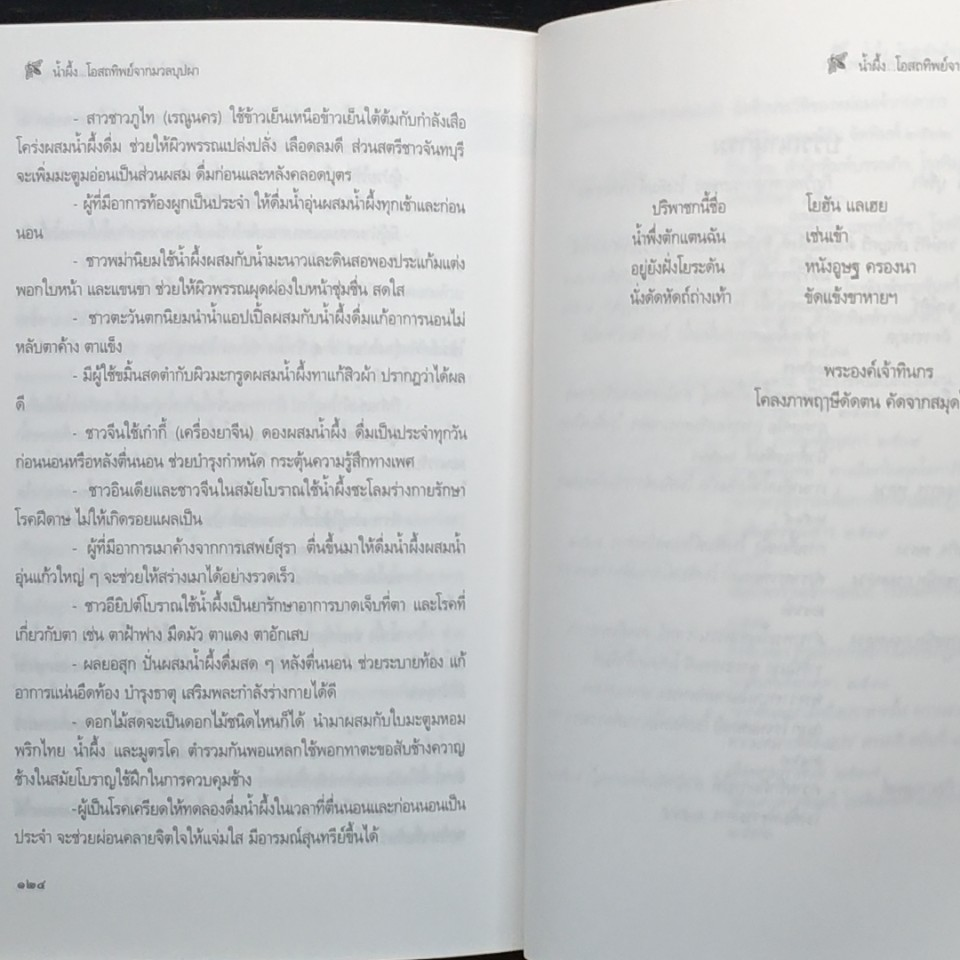 น้ำผึ้ง...โอสถทิพย์จากมวลบุปผา
- สาวชาวภูไท (เรณูนคร) ใช้ข้าวเย็นเหนือข้าวเย็นใต้ต้มกับกำลังเสือ
โคร่งผสมน้ำผึ้งดื่ม ช่วยให้ผิวพรรณเปล่งปลั่ง เลือดลมดี ส่วนสตรีชาวจันทบุรี
จะเพิ่มมะตูมอ่อนเป็นส่วนผสม ดื่มก่อนและหลังคลอดบุตร
- ผู้ที่มีอาการท้องผูกเป็นประจำ ให้ดื่มน้ำอุ่นผสมน้ำผึ้งทุกเช้าและก่อน
นอน
- ชาวพม่านิยมใช้น้ำผึ้งผสมกับน้ำมะนาวและดินสอพองประแก้มแต่ง
พอกใบหน้า และแขนขา ช่วยให้ผิวพรรณผุดผ่องใบหน้าชุ่มชื่น สดใส
- ชาวตะวันตกนิยมนำน้ำแอปเปิ้ลผสมกับน้ำผึ้งดื่มแก้อาการนอนไม่
หลับตาค้าง ตาแข็ง
- มีผู้ใช้ขมิ้นสดตำกับผิวมะกรูดผสมน้ำผึ้งทาแก้สิวฝ้า ปรากฏว่าได้ผล
ดี
- ชาวจีนใช้เก๋ากี้ (เครื่องยาจีน) ดองผสมน้ำผึ้ง ดื่มเป็นประจำทุกวัน
ก่อนนอนหรือหลังตื่นนอน ช่วยบำรุงกำหนัด กระตุ้นความรู้สึกทางเพศ
- ชาวอินเดียและชาวจีนในสมัยโบราณใช้น้ำผึ้งชะโลมร่างกายรักษา
โรคฝีดาษ ไม่ให้เกิดรอยแผลเป็น
- ผู้ที่มีอาการเมาค้างจากการเสพย์สุรา ตื่นขึ้นมาให้ดื่มน้ำผึ้งผสมน้ำ
อุ่นแก้วใหญ่ ๆ จะช่วยให้สร่างเมาได้อย่างรวดเร็ว
- ชาวอียิปต์โบราณใช้น้ำผึ้งเป็นยารักษาอาการบาดเจ็บที่ตา และโรคที่
เกี่ยวกับตา เช่น ตาฝ้าฟาง มืดมัว ตาแดง ตาอักเสบ
- ผลยอสุก ปั่นผสมน้ำผึ้งดื่มสด ๆ หลังตื่นนอน ช่วยระบายท้อง แก้
อาการแน่นอืดท้อง บำรุงธาตุ เสริมพละกำลังร่างกายได้ดี
- ดอกไม้สดจะเป็นดอกไม้ชนิดไหนก็ได้ นำมาผสมกับใบมะตูมหอม
พริกไทย น้ำผึ้ง และมูตรโค ตำรวมกันพอแหลกใช้พอกทาตะขอสับช้างควาญ
ช้างในสมัยโบราญใช้ฝึกในการควบคุมช้าง
-ผู้เป็นโรคเครียดให้ทดลองดื่มน้ำผึ้งในเวลาที่ตื่นนอนและก่อนนอนเป็น
ประจำ จะช่วยผ่อนคลายจิตใจให้แจ่มใส มีอารมณ์สุนทรีย์ขึ้นได้
๑๒๔
น้ำผึ้ง...โอสถทิพย์จา
ปริพาชกนี้ชื่อ โยฮัน แลเฮย
น้ำพึ่งตักแตนฉัน เช่นเข้า
อยู่ยังฝั่งโยระดัน หนังอูษฐ ครองนา
นั่งดัดหัดถ์ถ่างเท้า ขัดแข้งขาหายฯ
พระองค์เจ้าทินกร
โคลงภาพฤๅษีดัดตน คัดจากสมุด